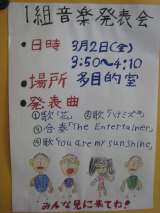 1組音楽発表会
・日時 3月2日(金)
3:50〜4:10
・場所 多目的室
・発表曲
①歌「花」 ②歌「ハミズキ」
③合奏「The Entertainer」
④歌「You are my sunshine」
みんな見に来てね!